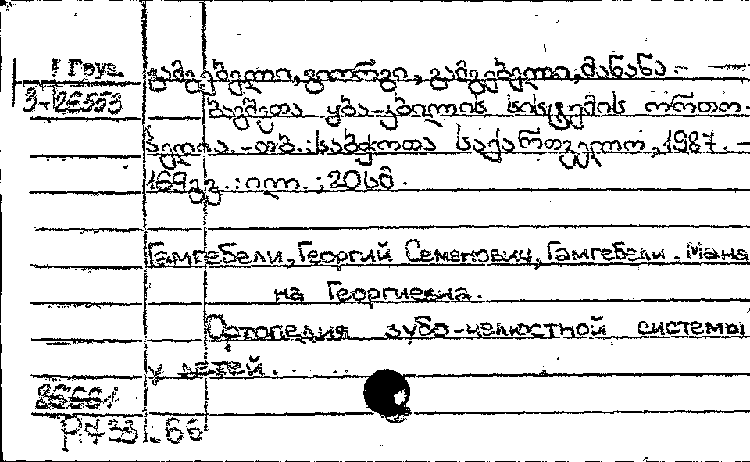 Груз.
გამგებელი, გიორგი, გამგებელი, მანანა. -
3-26553
ბავშვთა ყბა-კბილის სისტემის ორთო-
პედია. -თბ.: საბჭოთა საქართველო, 1987. -
169გვ. : ილ. ; 20სმ.
Гамгебели, Георгий Семенович, Гамгебели, Мана
на Георгиевна.
Ортопедия зубо-челюстной системы
у детей.
P.733.66